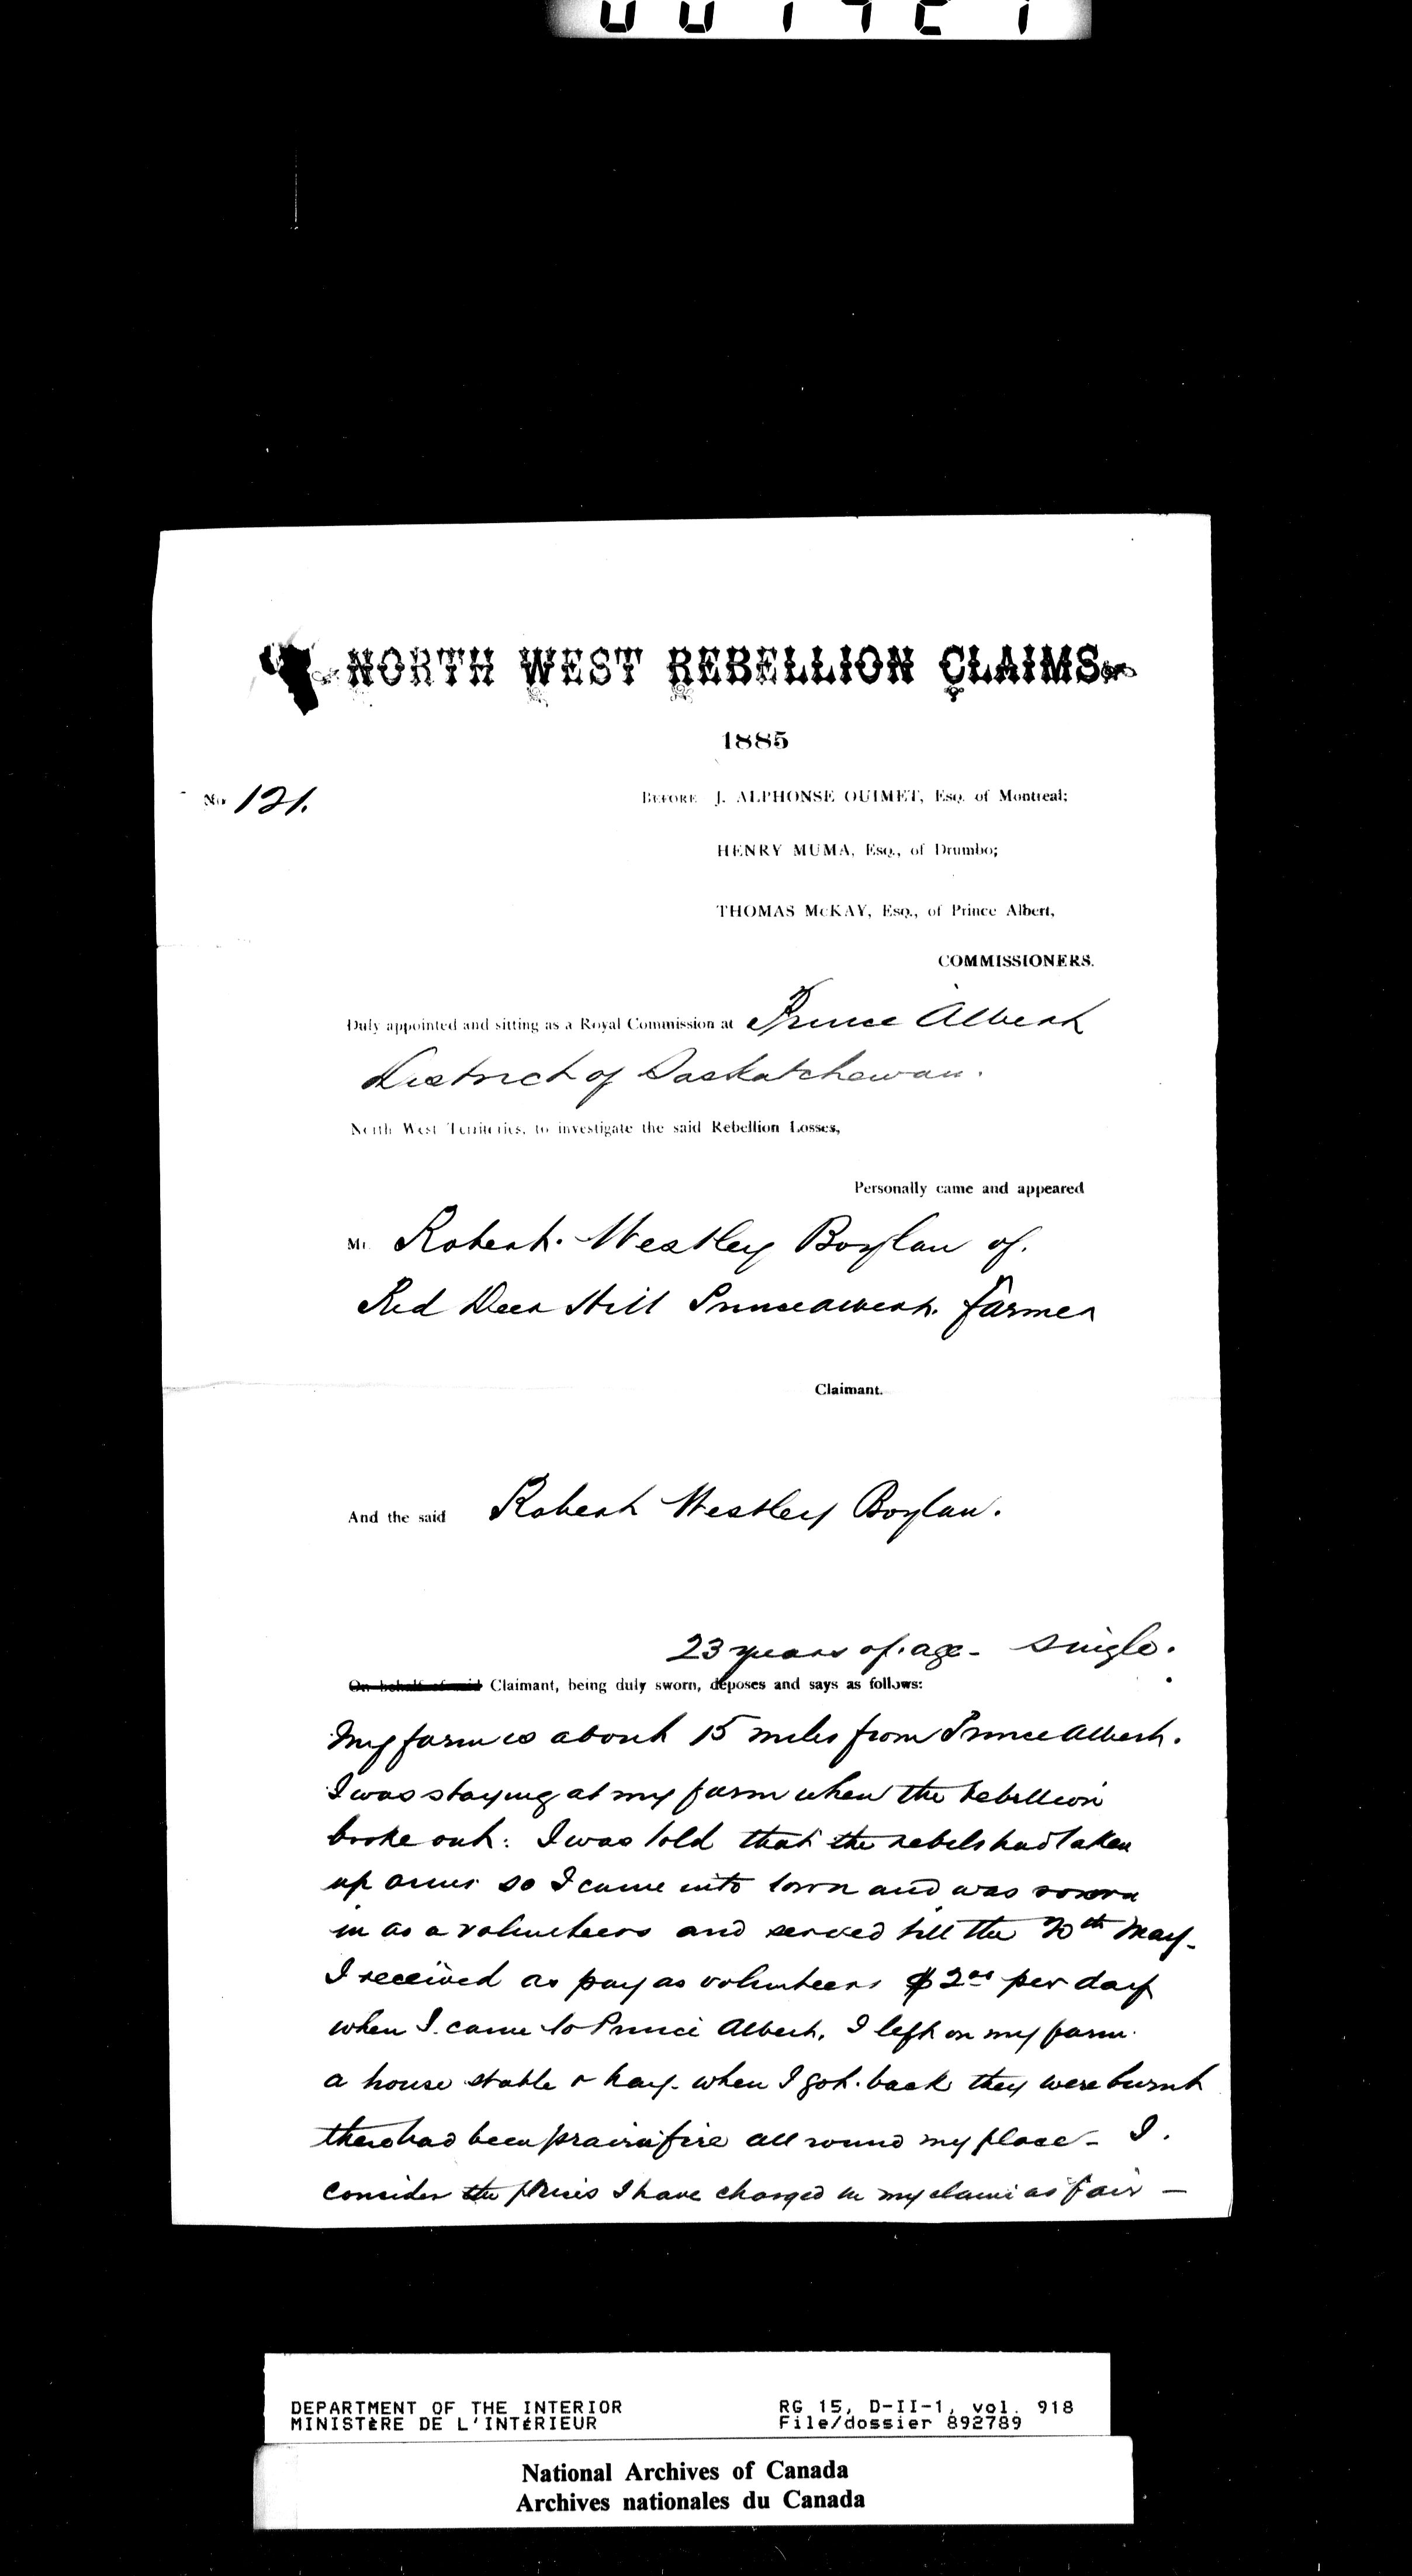 NORTH WEST REBELLION CLAIMS
1885
No 121.
BEFORE J. ALPHONSE OUIMET, Esq. of Montreal;
HENRY MUMA, Esq., of Drumbo;
THOMAS McKAY, Esq., of Prince Albert,
COMMISSIONERS.
Duly appointed and sitting as a Royal Commission at Prince Albert
District of Saskatchewan.
North West Territories, to investigate the said Rebellion Losses,
Personally came and appeared
Mr. Robert. Westley Boylan of.
Red Deer Hill Prince Albert. farmer
Claimant.
And the said Robert Westley Boylan.
23 years of age - single.
On behalf of said Claimant, being duly sworn, deposes and says as follows:
My farm is about 15 miles from Prince Albert.
I was staying at my farm when the rebellion
broke out: I was told that the rebels had taken
up arms so I came into town and was sworn
in as a volunteers and served till the 20th May-
I received as pay as volunteers $2.00 per day
when I came to Prince Albert, I left on my farm
a house stable & hay- when I got back they were burnt
there had been prairie fire all round my place - I.
consider the prices I have charged in my claim as fair -
DEPARTMENT OF THE INTERIOR
MINISTÈRE DE L'INTÉRIEUR
RG 15, D-II-1, vol. 918
File/dossier 892789
National Archives of Canada
Archives nationales du Canada